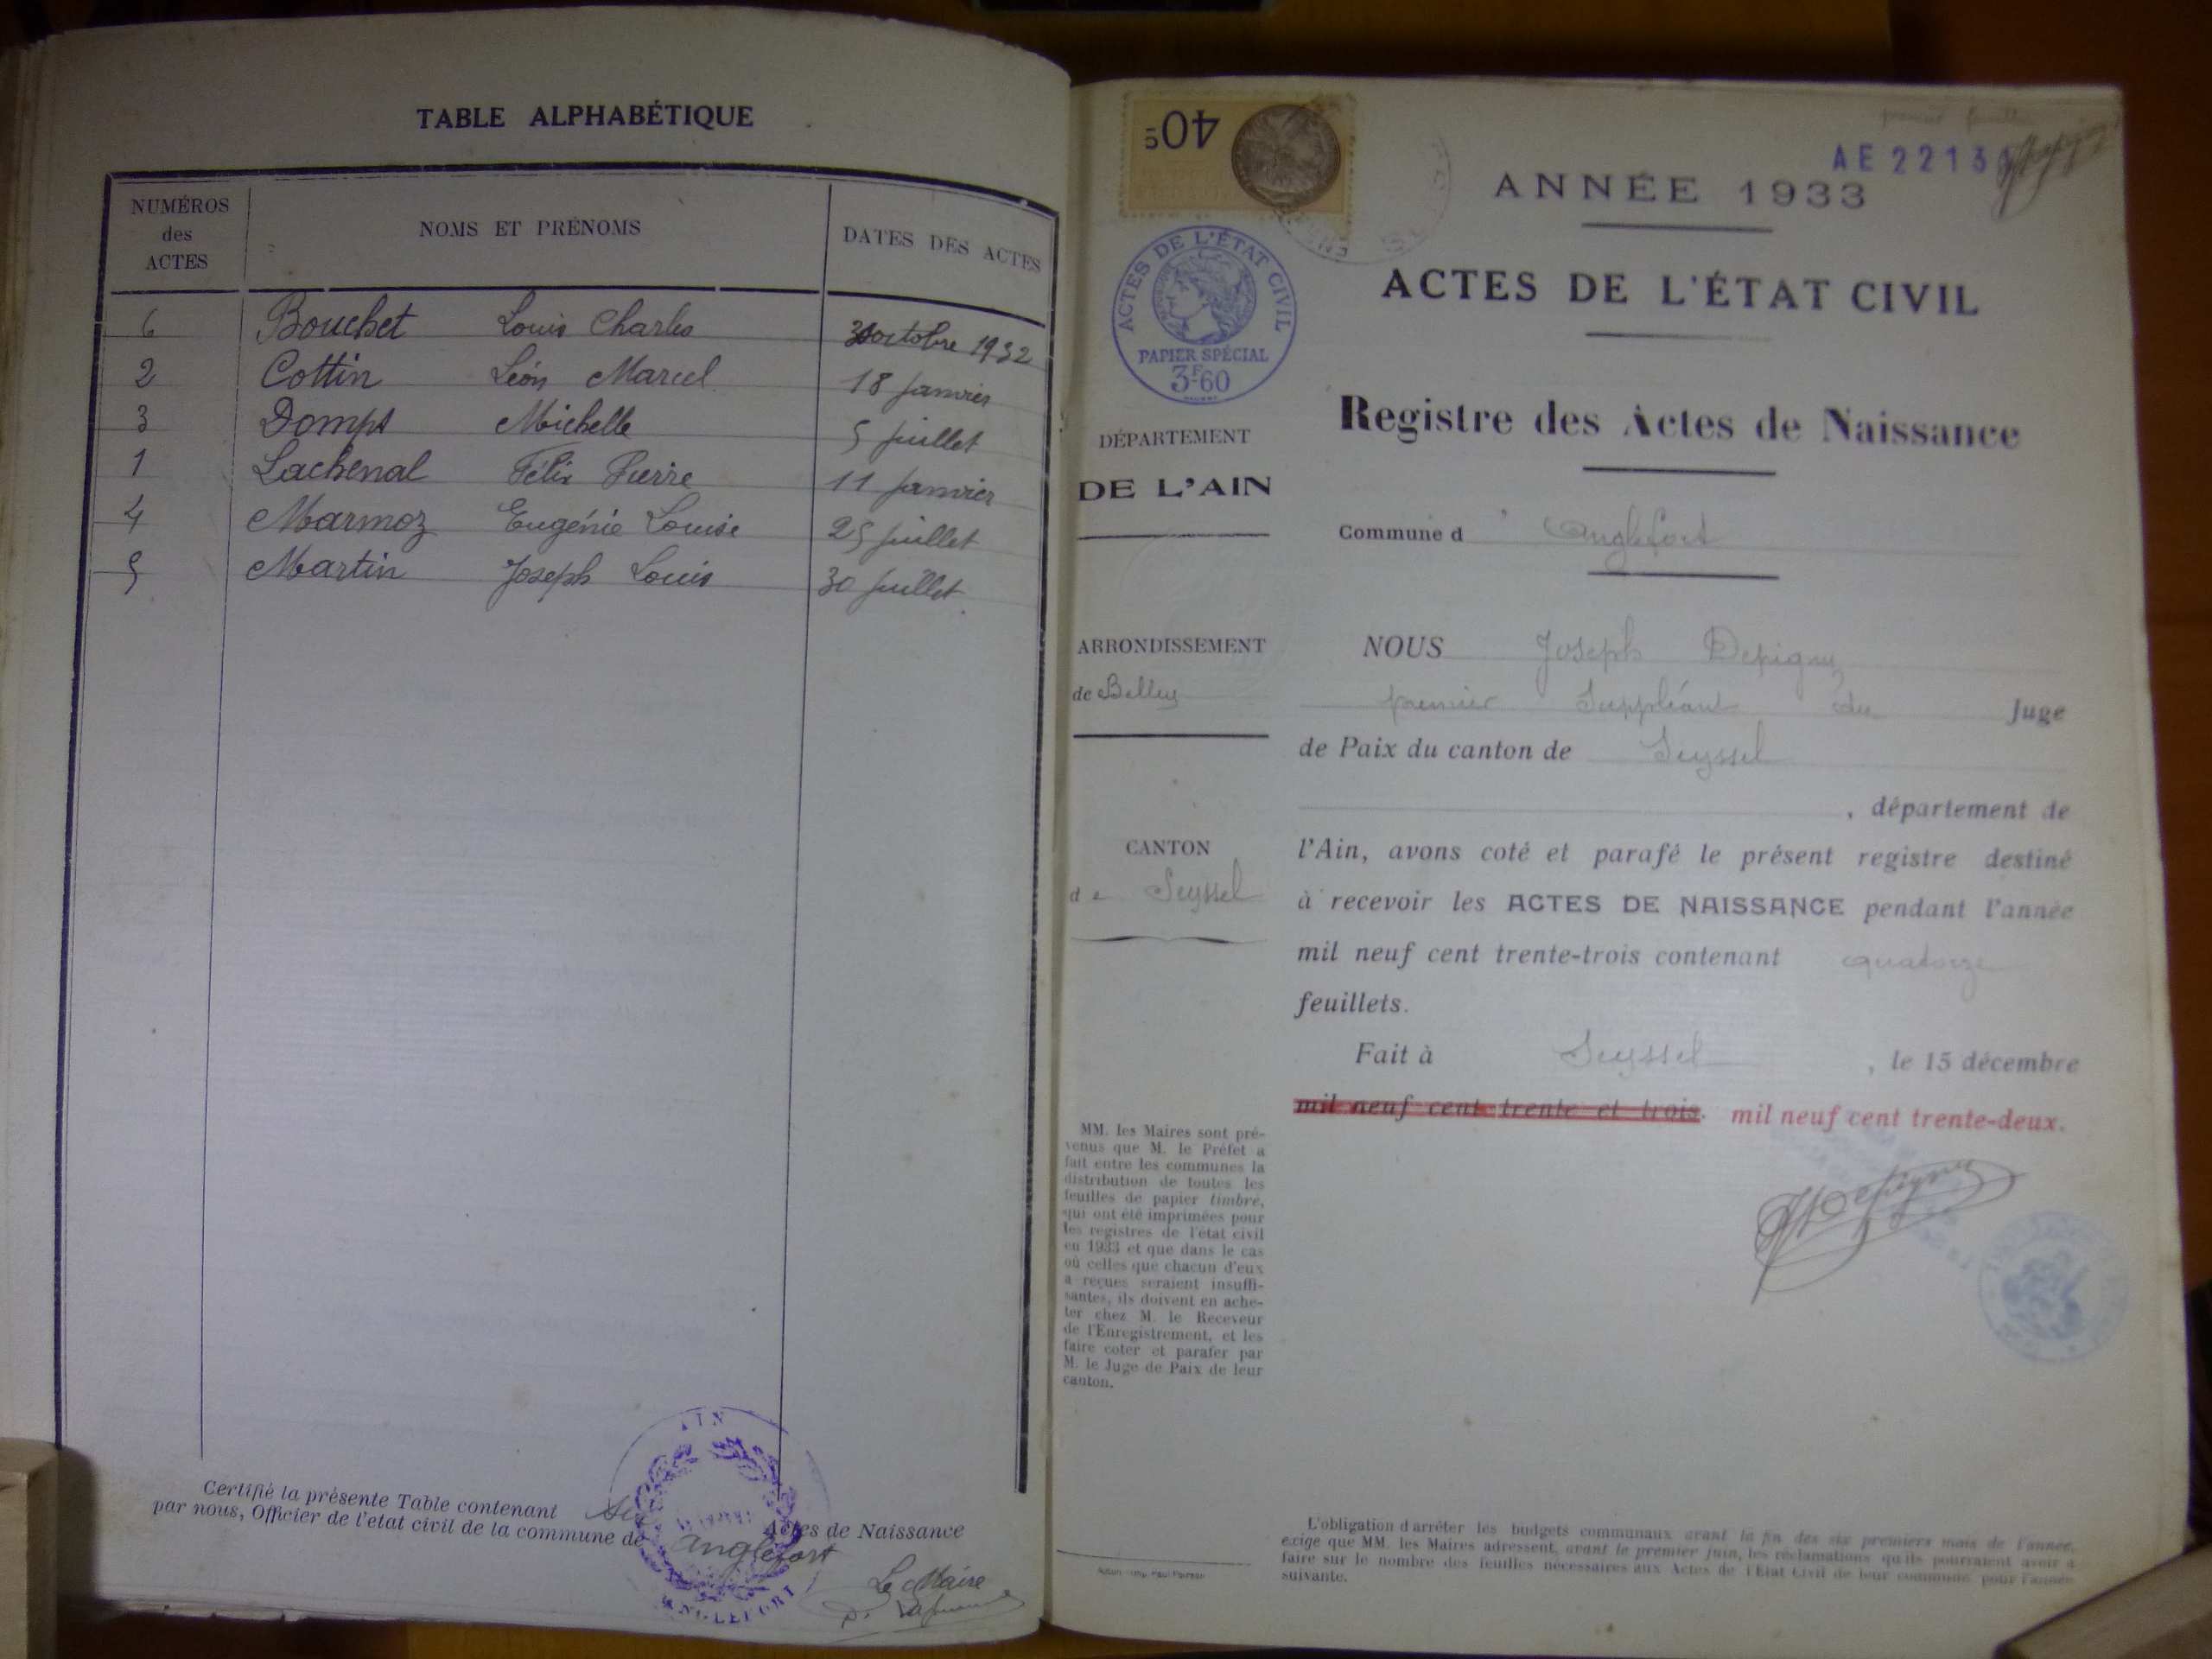 TABLE ALPHABÉTIQUE
NUMÉROS des ACTES
NOMS ET PRÉNOMS
DATES DES ACTES
6 Bouchet Louis Charles 30 octobre 1932
2 Cottin Léon Marcel 18 janvier
3 Domps Michelle 5 juillet
1 Lachenal Félix Pierre 11 janvier
4 Marmoz Eugénie Louise 25 juillet
5 Martin Joseph Louis 30 juillet
Certifié la présente Table contenant six Actes de Naissance
par nous, Officier de l'état civil de la commune de Anglefort
Le Maire
AIN
ANGLEFORT
40c
premier feuillet
AE 2213
ANNÉE 1933
ACTES DE L'ÉTAT CIVIL
PAPIER SPÉCIAL
3F60
ACTES DE L'ÉTAT CIVIL
Registre des Actes de Naissance
DÉPARTEMENT
DE L'AIN
Commune d' Anglefort
ARRONDISSEMENT
de Belley
CANTON
de Seyssel
MM. les Maires sont pré-
venus que M. le Préfet a
fait entre les communes la
distribution de toutes les
feuilles de papier timbré,
qui ont été imprimées pour
les registres de l'état civil
en 1933 et que dans le cas
où celles que chacun d'eux
a reçues seraient insuffi-
santes, ils doivent en ache-
ter chez M. le Receveur
de l'Enregistrement, et les
faire coter et parafer par
M. le Juge de Paix de leur
canton.
NOUS Joseph Depigny
premier Suppléant du Juge
de Paix du canton de Seyssel
, département de
l'Ain, avons coté et parafé le présent registre destiné
à recevoir les ACTES DE NAISSANCE pendant l'année
mil neuf cent trente-trois contenant quatorze
feuillets.
Fait à Seyssel, le 15 décembre
mil neuf cent trente et trois. mil neuf cent trente-deux.
L'obligation d'arrêter les budgets communaux avant la fin des six premiers mois de l'année,
exige que MM. les Maires adressent, avant le premier juin, les réclamations qu'ils pourraient avoir à
faire sur le nombre des feuilles nécessaires aux Actes de l'État Civil de leur commune pour l'année
suivante.